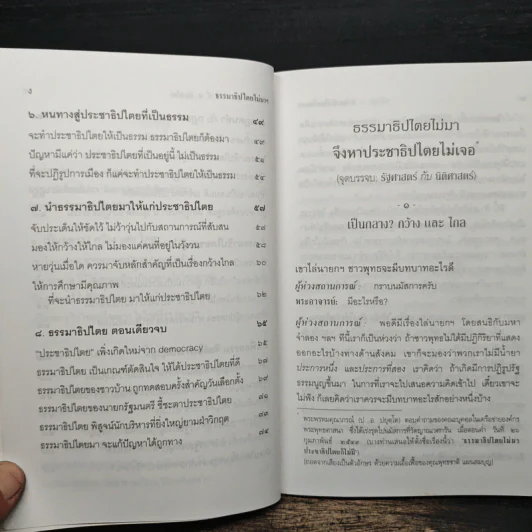 ง
ธรรมาธิปไตยไม่มาฯ
๖. หนทางสู่ประชาธิปไตยที่เป็นธรรม ๔๙
จะทำประชาธิปไตยให้เป็นธรรม ธรรมาธิปไตยก็ต้องมา ๔๙
ปัญหามีแค่ว่า ประชาธิปไตยเป็นอยู่นี้ ไม่เป็นธรรม ๕๑
ที่จะปฏิรูปการเมือง ก็แค่จะทำประชาธิปไตยให้เป็นธรรม ๕๔
๗. นำธรรมาธิปไตยมาให้แก่ประชาธิปไตย ๕๗
จับประเด็นให้ชัดไว้ ไม่ว้าวุ่นไปกับสถานการณ์ที่สับสน ๕๗
มองให้กว้างให้ไกล ไม่มองแค่คนที่อยู่ในวังวน ๕๘
หายวุ่นเมื่อใด ควรมาจับหลักสำคัญที่เป็นเรื่องกว้างไกล ๖๐
ให้การศึกษามีคุณภาพ
ที่จะนำธรรมาธิปไตย มาให้แก่ประชาธิปไตย ๖๒
๘. ธรรมาธิปไตย ตอนเดียวจบ ๖๕
"ประชาธิปไตย" เพิ่งเกิดใหม่จาก democracy
ธรรมาธิปไตย เป็นเกณฑ์ตัดสินใจ ให้ได้ประชาธิปไตยที่ดี
ธรรมาธิปไตยของชาวบ้าน ถูกทดสอบครั้งสำคัญวันเลือกตั้ง
ธรรมาธิปไตยของนายกรัฐมนตรี ชี้ชะตาประชาธิปไตย
ธรรมาธิปไตย พิสูจน์นักบริหารที่ยิ่งใหญ่ยามฝ่าวิกฤต
ธรรมาธิปไตยมา จะแก้ปัญหาได้ถูกทาง ๘๕
ธรรมาธิปไตยไม่มา
จึงหาประชาธิปไตยไม่เจอ*
(จุดบรรจบ: รัฐศาสตร์ กับ นิติศาสตร์)
- ๑ -
เป็นกลาง? กว้าง และ ไกล
เขาไล่นายกฯ ชาวพุทธจะมีบทบาทอะไรดี
ผู้ห่วงสถานการณ์: กราบนมัสการครับ
พระอาจารย์: มีอะไรหรือ?
ผู้ห่วงสถานการณ์: พอดีมีเรื่องไล่นายกฯ โดยสนธิกับมหา
จำลอง ฯลฯ ทีนี้เราก็เป็นห่วงว่า ถ้าชาวพุทธไม่ได้มีปฏิกิริยาที่แสดง
ออกอะไรบ้างทางด้านสังคม เขาก็จะมองว่าพวกเราไม่มีน้ำยา
ประการหนึ่ง และประการที่สอง เราคิดว่า ถ้าเกิดมีการปฏิรูปรัฐ
ธรรมนูญขึ้นมา ในการที่เราจะไปเสนอความคิดเข้าไป เดี๋ยวเขาจะ
ไม่ฟัง ก็เลยคิดว่าเราควรจะมีบทบาทอะไรสักอย่างหนึ่งบ้าง
พระพรหมคุณาภรณ์ (ป. อ. ปยุตฺโต) ตอบคำถามของ